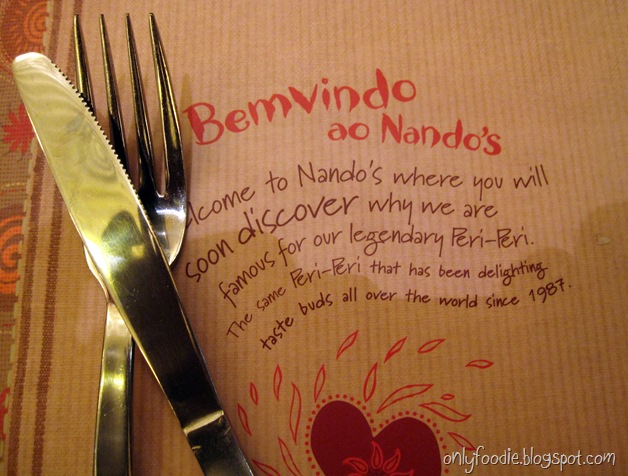 Bemvindo
ao Nando's
lcome to Nando's where you will
soon discover why we are
famous for our legendary Peri-Peri.
The same Peri-Peri that has been delighting
taste buds all over the world since 1987.
onlyfoodie.blogspot.com